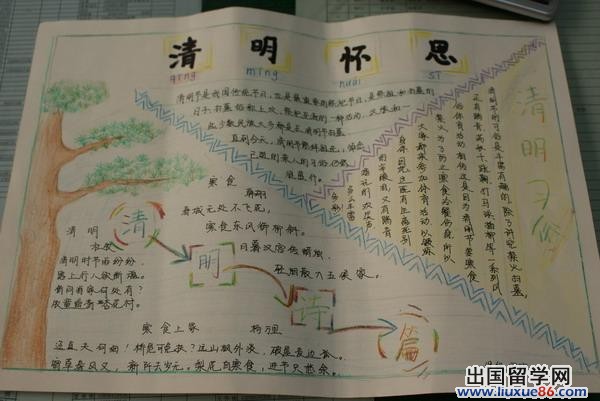 清明怀思
qīng míng huái sī
清明节是我国传统节日,也是最重要的祭祀节日,是祭祖和扫墓的
日子。扫墓俗称上坟,祭祀死者的一种活动。汉族和一
些少数民族大多都是在清明节扫墓
直到今天,清明节祭拜祖先,悼念
已逝的亲人的习俗仍很
盛行。
清明习俗
清明节的习俗是丰富有趣的,除了讲究禁火、扫墓,
还有踏青、荡秋千、蹴鞠、打马球、插柳等一系列风
俗体育活动。相传这是因为清明节要寒食
禁火,为了防止寒食冷餐伤身,所以
大家都来参加体育活动,以锻炼
身体。
寒食
韩翃
春城无处不飞花,
寒食东风御柳斜。
日暮汉宫传蜡烛,
轻烟散入五侯家。
清明
清明时节雨纷纷,
路上行人欲断魂。
借问酒家何处有?
牧童遥指杏花村。
清
明
诗
篇
寒食上冢 杨万里
迳直夫何细!桥危可免扶?远山枫外淡,破屋麦边孤。
宿草春风又,新阡去岁无。梨花自寒食,进节只愁余。
出国留学网
www.liuxue86.com